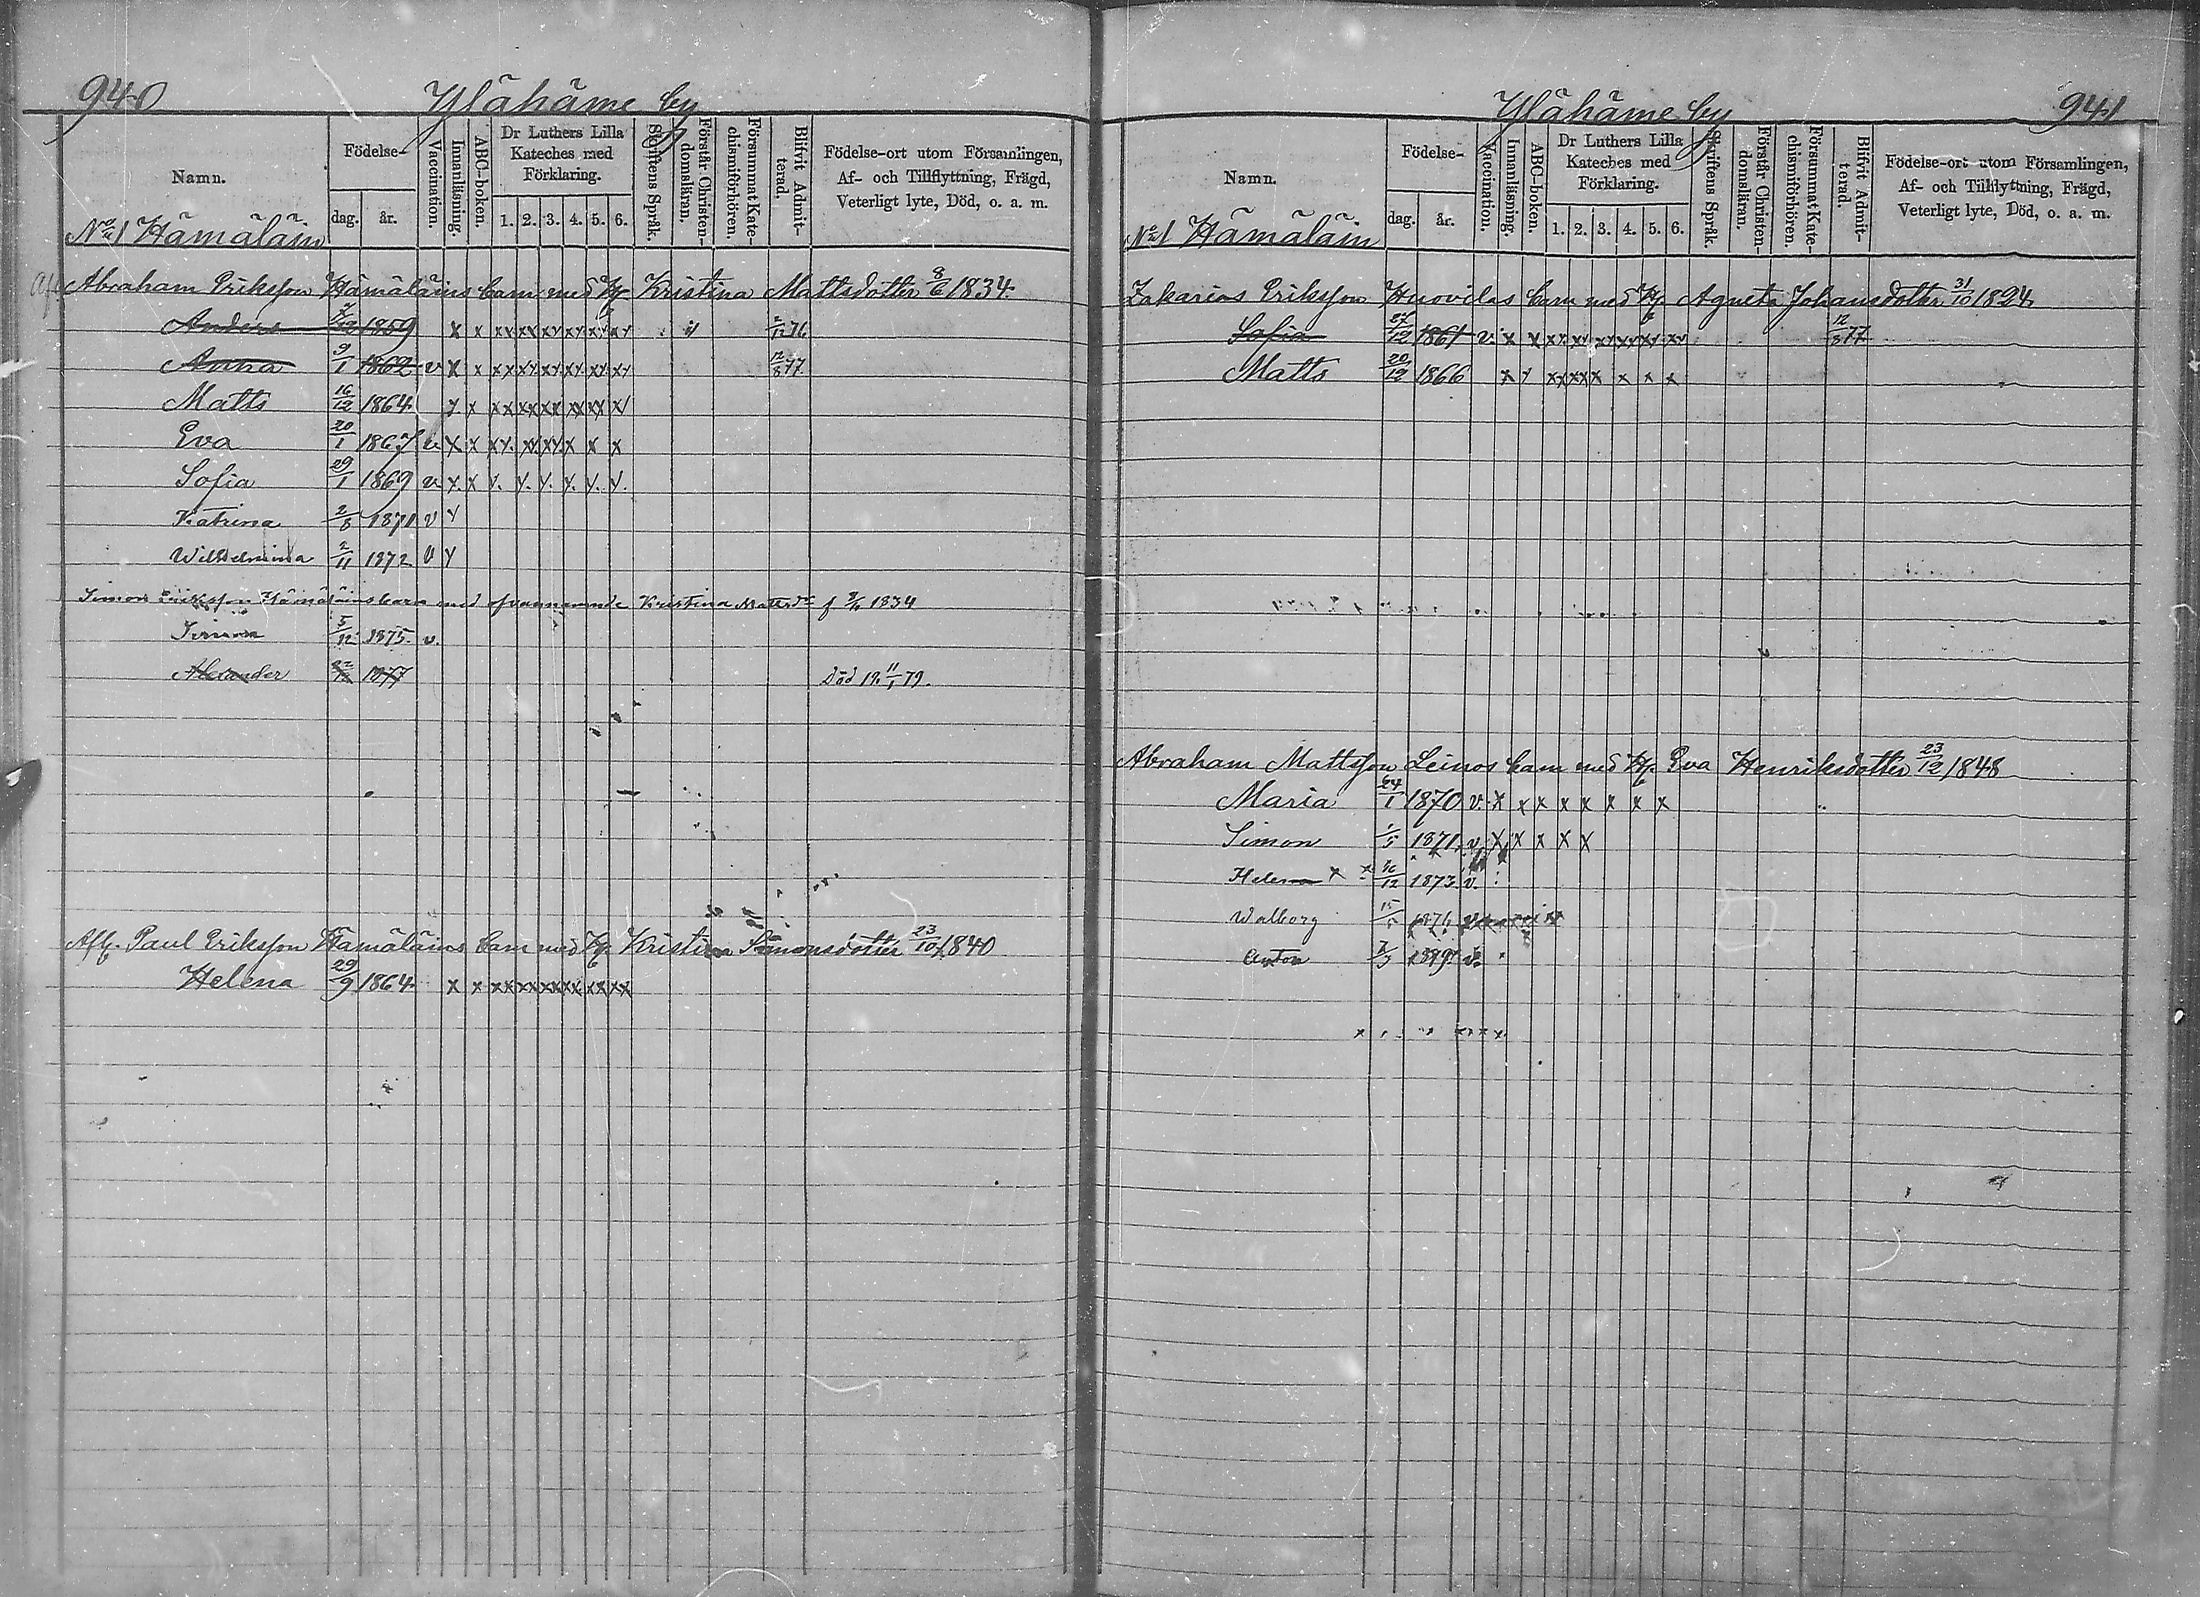 940 Ylähäme by
Namn. Födelse- dag. år. Vaccination. Innanläsning. ABC-boken. Dr Luthers Lilla Kateches med Förklaring. 1. 2. 3. 4. 5. 6. Skriftens Språk. Förstår Christendomsläran. Försummat Katechismiförhören. Blifvit Admitterad. Födelse-ort utom Församlingen, Af- och Tillflyttning, Frägd, Veterligt lyte, Död, o. a. m.
No 1 Hämäläin
Afl. Abraham Eriksson Hämäläins barn med H. Kristina Mattsdotter 8/6 1834.
Anders 1859 x x xx xx xy xy xy xy 2/12 76
Anna 9/1 1862 v x x xx xy xy xy xy xy 12/8 77
Matts 16/12 1864 y x xx xx xx xx xx x/
Eva 20/1 1867 v x x xy. xy. xy. x x x
Sofia 29/1 1869 v y. x y. y. y. y. y. y.
Katrina 2/8 1871 v y
Wilhelmina 2/11 1872 v y
Simon Eriksson Hämäläins barn med ofvannämnde Kristina Mattsdr f 8/6 1834
Simon 5/12 1875. v.
Alexander 1877 Död 11/1 79.
Afl. Paul Eriksson Hämäläins barn med H. Kristina Simonsdotter 23/10 1840
Helena 29/9 1864 x x xx xx xx xx xx xx
Ylähäme by 941
Namn. Födelse- dag. år. Vaccination. Innanläsning. ABC-boken. Dr Luthers Lilla Kateches med Förklaring. 1. 2. 3. 4. 5. 6. Skriftens Språk. Förstår Christendomsläran. Försummat Katechismiförhören. Blifvit Admitterad. Födelse-ort utom Församlingen, Af- och Tillflyttning, Frägd, Veterligt lyte, Död, o. a. m.
No 1 Hämäläin
Zakarias Eriksson Huovilas barn med H. Agneta Johansdotter 31/10 1824
Sofia 1861 v. x x xy xy xy xy xy xy 12/8 77
Matts 20/12 1866 x y xx xx x x x x
Abraham Mattsson Leinos barn med H. Eva Henriksdotter 23/12 1848
Maria 24/1 1870 v. x x x x x x x x
Simon 1871. v. x x x x x
Helena 1873. v.
Walborg 15/5
Anton v.